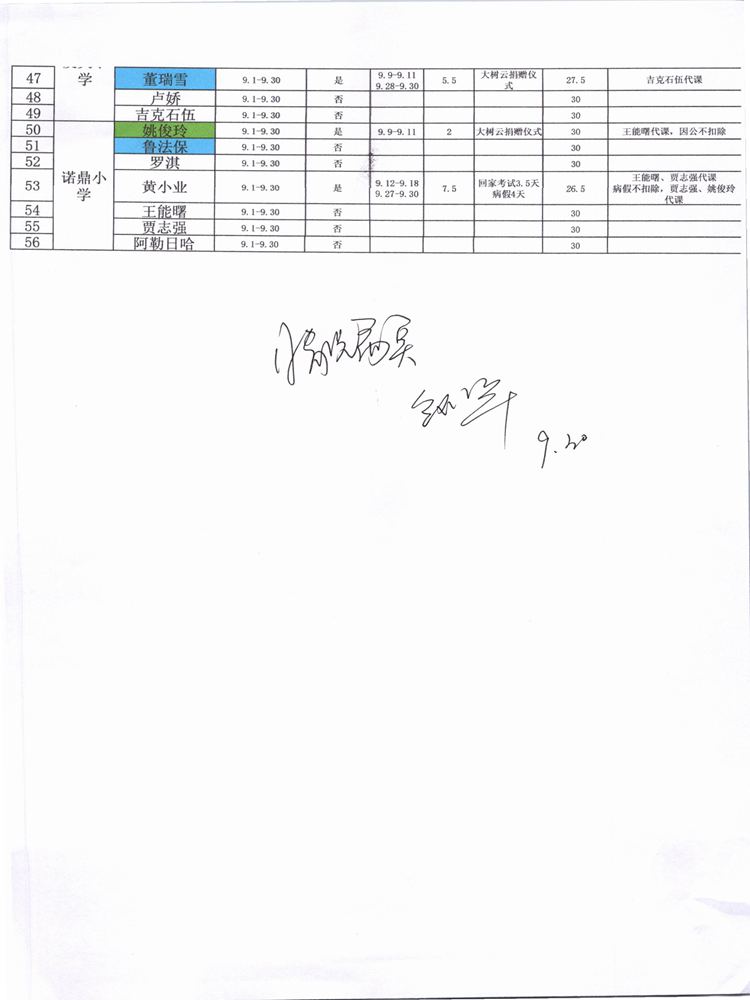 47 学 董瑞雪 9.1-9.30 是 9.9-9.11 9.28-9.30 5.5 大树云捐赠仪式 27.5 吉克石伍代课
48 卢娇 9.1-9.30 否 30
49 吉克石伍 9.1-9.30 否 30
50 诺鼎小学 姚俊玲 9.1-9.30 是 9.9-9.11 2 大树云捐赠仪式 30 王能曙代课，因公不扣除
51 鲁法保 9.1-9.30 否 30
52 罗淇 9.1-9.30 否 30
53 黄小业 9.1-9.30 是 9.12-9.18 9.27-9.30 7.5 回家考试3.5天 病假4天 26.5 王能曙、贾志强代课 病假不扣除，贾志强、姚俊玲代课
54 王能曙 9.1-9.30 否 30
55 贾志强 9.1-9.30 否 30
56 阿勒日哈 9.1-9.30 否 30
9.30